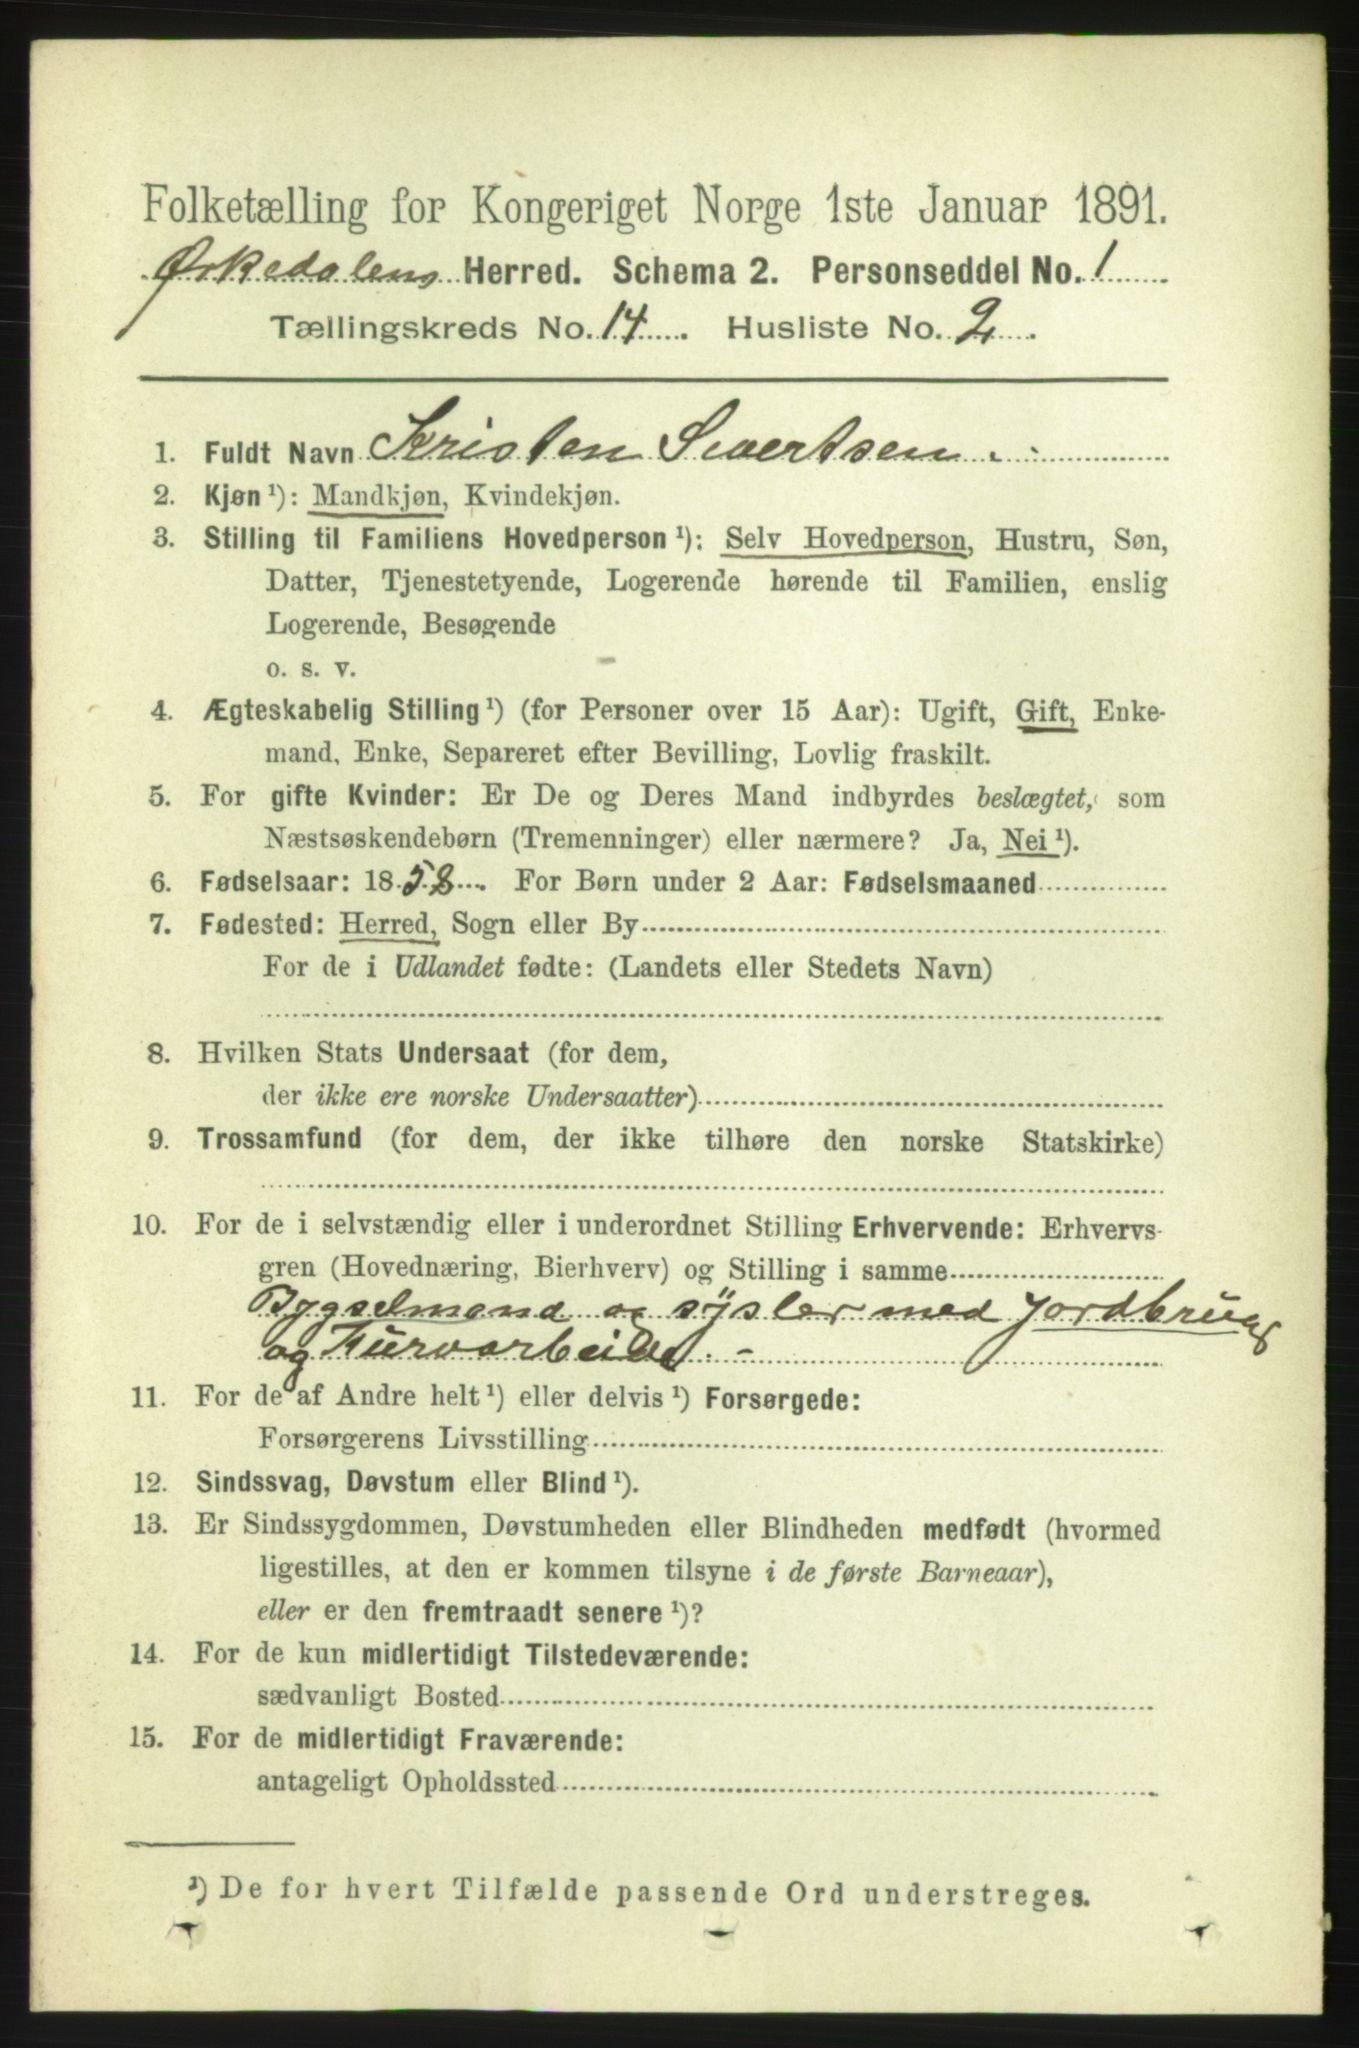 Folketælling for Kongeriget Norge 1ste Januar 1891.
Ørkedalens Herred. Schema 2. Personseddel No. 1
Tællingskreds No. 14. Husliste No. 2.
1. Fuldt Navn Kristen Sivertsen
2. Kjøn ¹): Mandkjøn, Kvindekjøn.
3. Stilling til Familiens Hovedperson ¹): Selv Hovedperson, Hustru, Søn,
Datter, Tjenestetyende, Logerende hørende til Familien, enslig
Logerende, Besøgende
o. s. v.
4. Ægteskabelig Stilling ¹) (for Personer over 15 Aar): Ugift, Gift, Enke-
mand, Enke, Separeret efter Bevilling, Lovlig fraskilt.
5. For gifte Kvinder: Er De og Deres Mand indbyrdes beslægtet, som
Næstsøskendebørn (Tremenninger) eller nærmere? Ja, Nei ¹).
6. Fødselsaar: 1858. For Børn under 2 Aar: Fødselsmaaned
7. Fødested: Herred, Sogn eller By
For de i Udlandet fødte: (Landets eller Stedets Navn)
8. Hvilken Stats Undersaat (for dem,
der ikke ere norske Undersaatter)
9. Trossamfund (for dem, der ikke tilhøre den norske Statskirke)
10. For de i selvstændig eller i underordnet Stilling Erhvervende: Erhvervs-
gren (Hovednæring, Bierhverv) og Stilling i samme
Bygselmand og sÿsler med Jordbrug
og Kurvarbeide. -
11. For de af Andre helt ¹) eller delvis ¹) Forsørgede:
Forsørgerens Livsstilling
12. Sindssvag, Døvstum eller Blind ¹).
13. Er Sindssygdommen, Døvstumheden eller Blindheden medfødt (hvormed
ligestilles, at den er kommen tilsyne i de første Barneaar),
eller er den fremtraadt senere ¹)?
14. For de kun midlertidigt Tilstedeværende:
sædvanligt Bosted
15. For de midlertidigt Fraværende:
antageligt Opholdssted
¹) De for hvert Tilfælde passende Ord understreges.